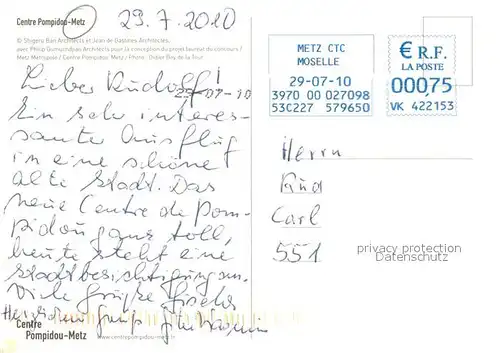 Centre Pompidou-Metz
29.7.2010
© Shigeru Ban Architects et Jean de Gastines Architectes,
avec Philip Gumuchdjian Architects pour la conception du projet lauréat du concours /
Metz Métropole / Centre Pompidou-Metz / Photo : Didier Boy de la Tour
METZ CTC
MOSELLE
29-07-10
3970 00 027098
53C227 579650
€ R.F.
LA POSTE
00075
VK 422153
Lieber Rudolf!
27-07-10
Ein sehr interes-
santer Ausflug
in eine schöne
alte Stadt. Das
neue Centre de Pom-
pidou ganz toll,
heute steht eine
Stadtbesichtigung an.
Viele Grüße Gisela
Herzlichen Gruß
Herrn
Carl
551
privacy protection
Datenschutz
Centre
Pompidou-Metz
www.centrepompidou-metz.fr